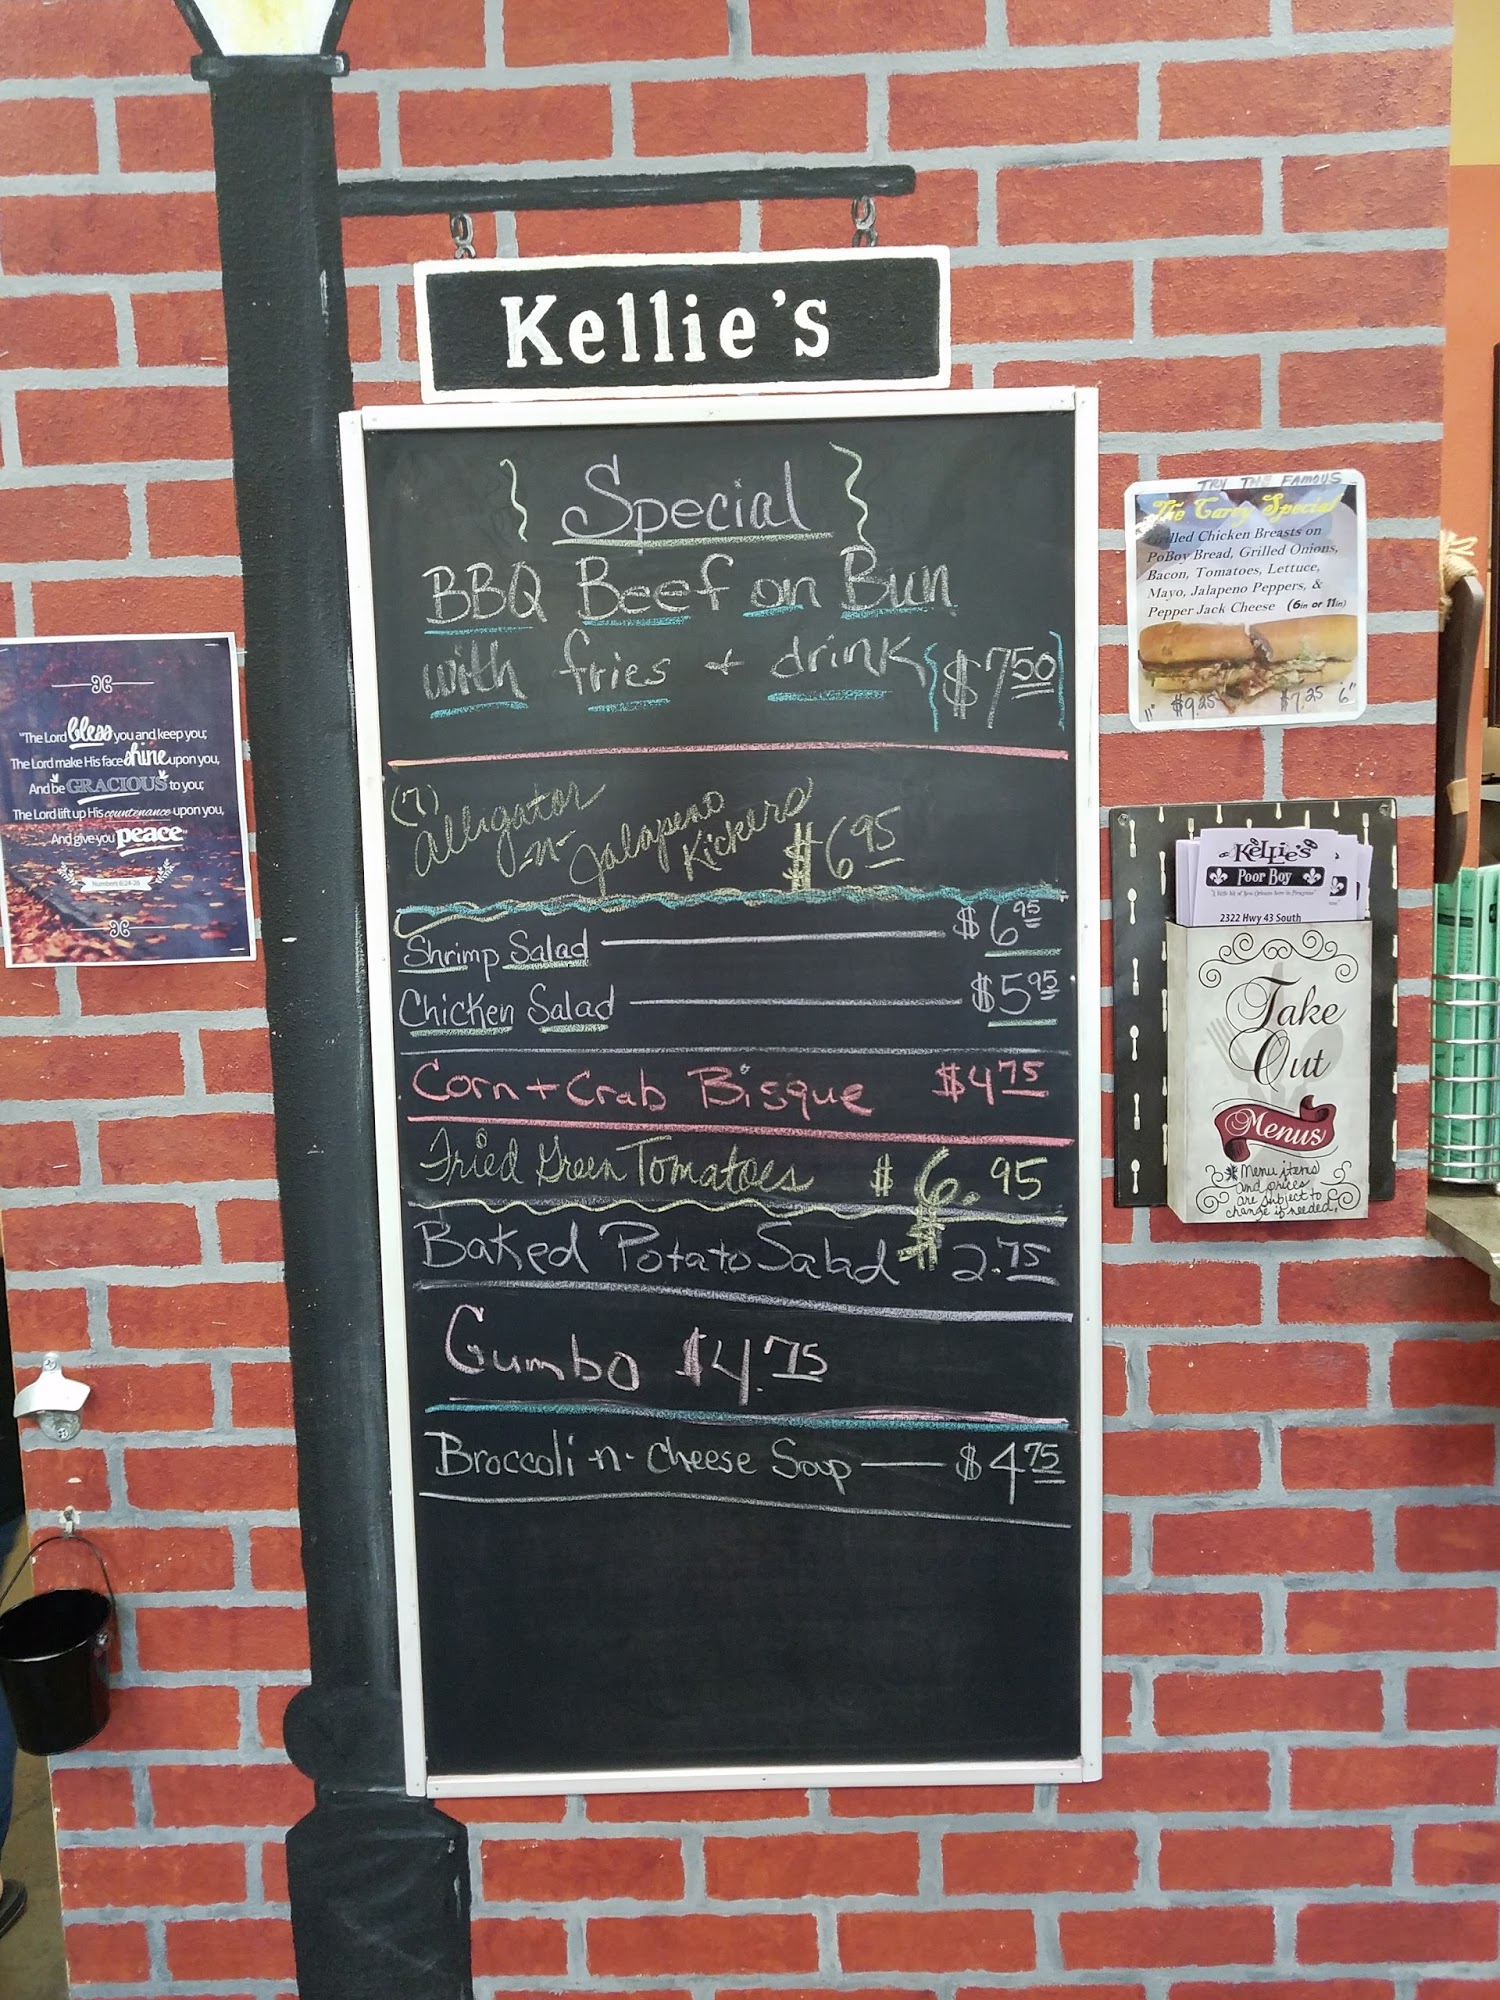 Kellie's
Special
BBQ Beef on Bun
with fries + drink $7.50
(7) Alligator
-n- Jalapeno
Kickers $6.95
Shrimp Salad $6.95
Chicken Salad $5.95
Corn + Crab Bisque $4.75
Fried Green Tomatoes $6.95
Baked Potato Salad $2.75
Gumbo $4.75
Broccoli-n-Cheese Soup $4.75
"The Lord bless you and keep you;
The Lord make His face shine upon you,
And be GRACIOUS to you;
The Lord lift up His countenance upon you,
And give you peace"
Numbers 6:24-26
TRY THE FAMOUS
The Carey Special
Grilled Chicken Breasts on
PoBoy Bread, Grilled Onions,
Bacon, Tomatoes, Lettuce,
Mayo, Jalapeno Peppers, &
Pepper Jack Cheese (6in or 11in)
11" $9.25 $7.25 6"
Kellie's
Poor Boy
2322 Hwy 43 South
Take
Out
Menus
*Menu items
and prices
are subject to
change if needed.